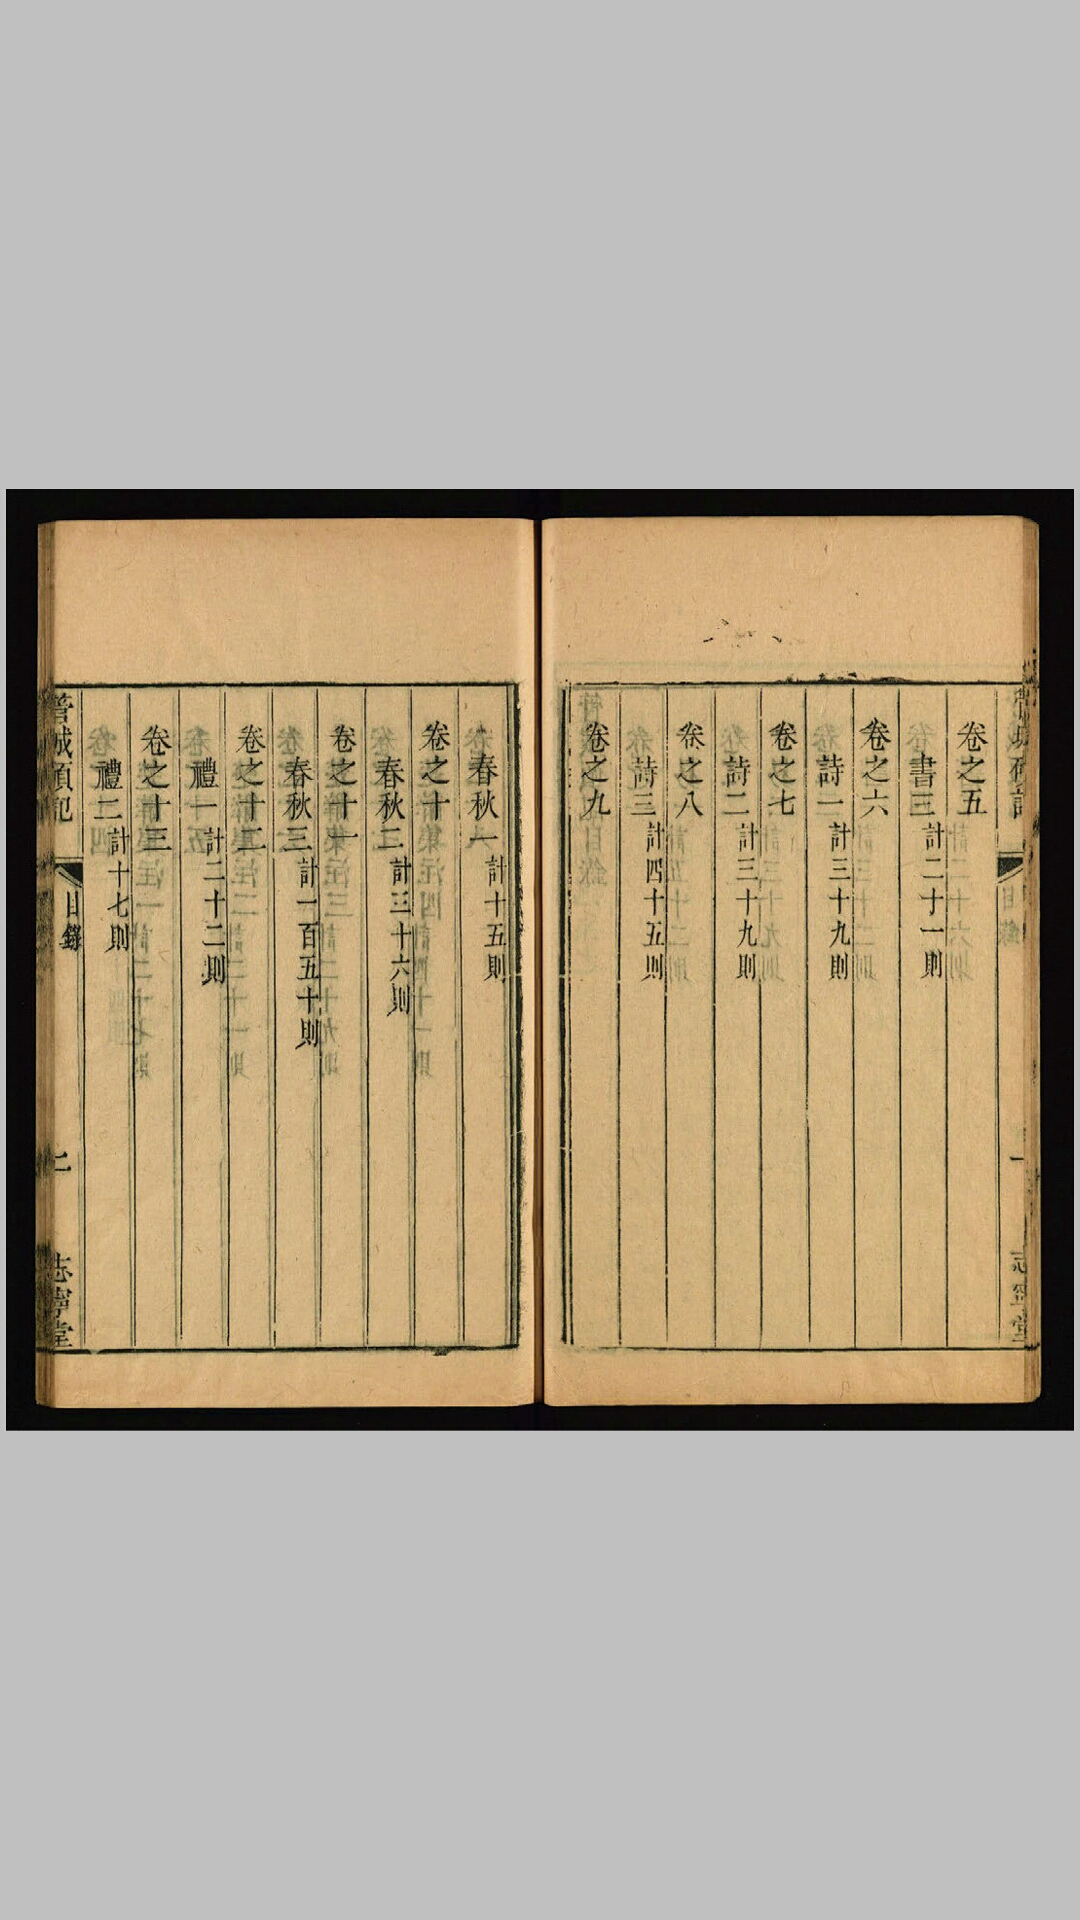 卷之五
書三 計二十一則
卷之六
詩一 計三十九則
卷之七
詩二 計三十九則
卷之八
詩三 計四十五則
卷之九
春秋一 計十五則
卷之十
春秋二 計三十六則
卷之十一
春秋三 計一百五十則
卷之十二
禮一 計二十二則
卷之十三
禮二 計十七則
管城碩記
目錄
二
志寧堂